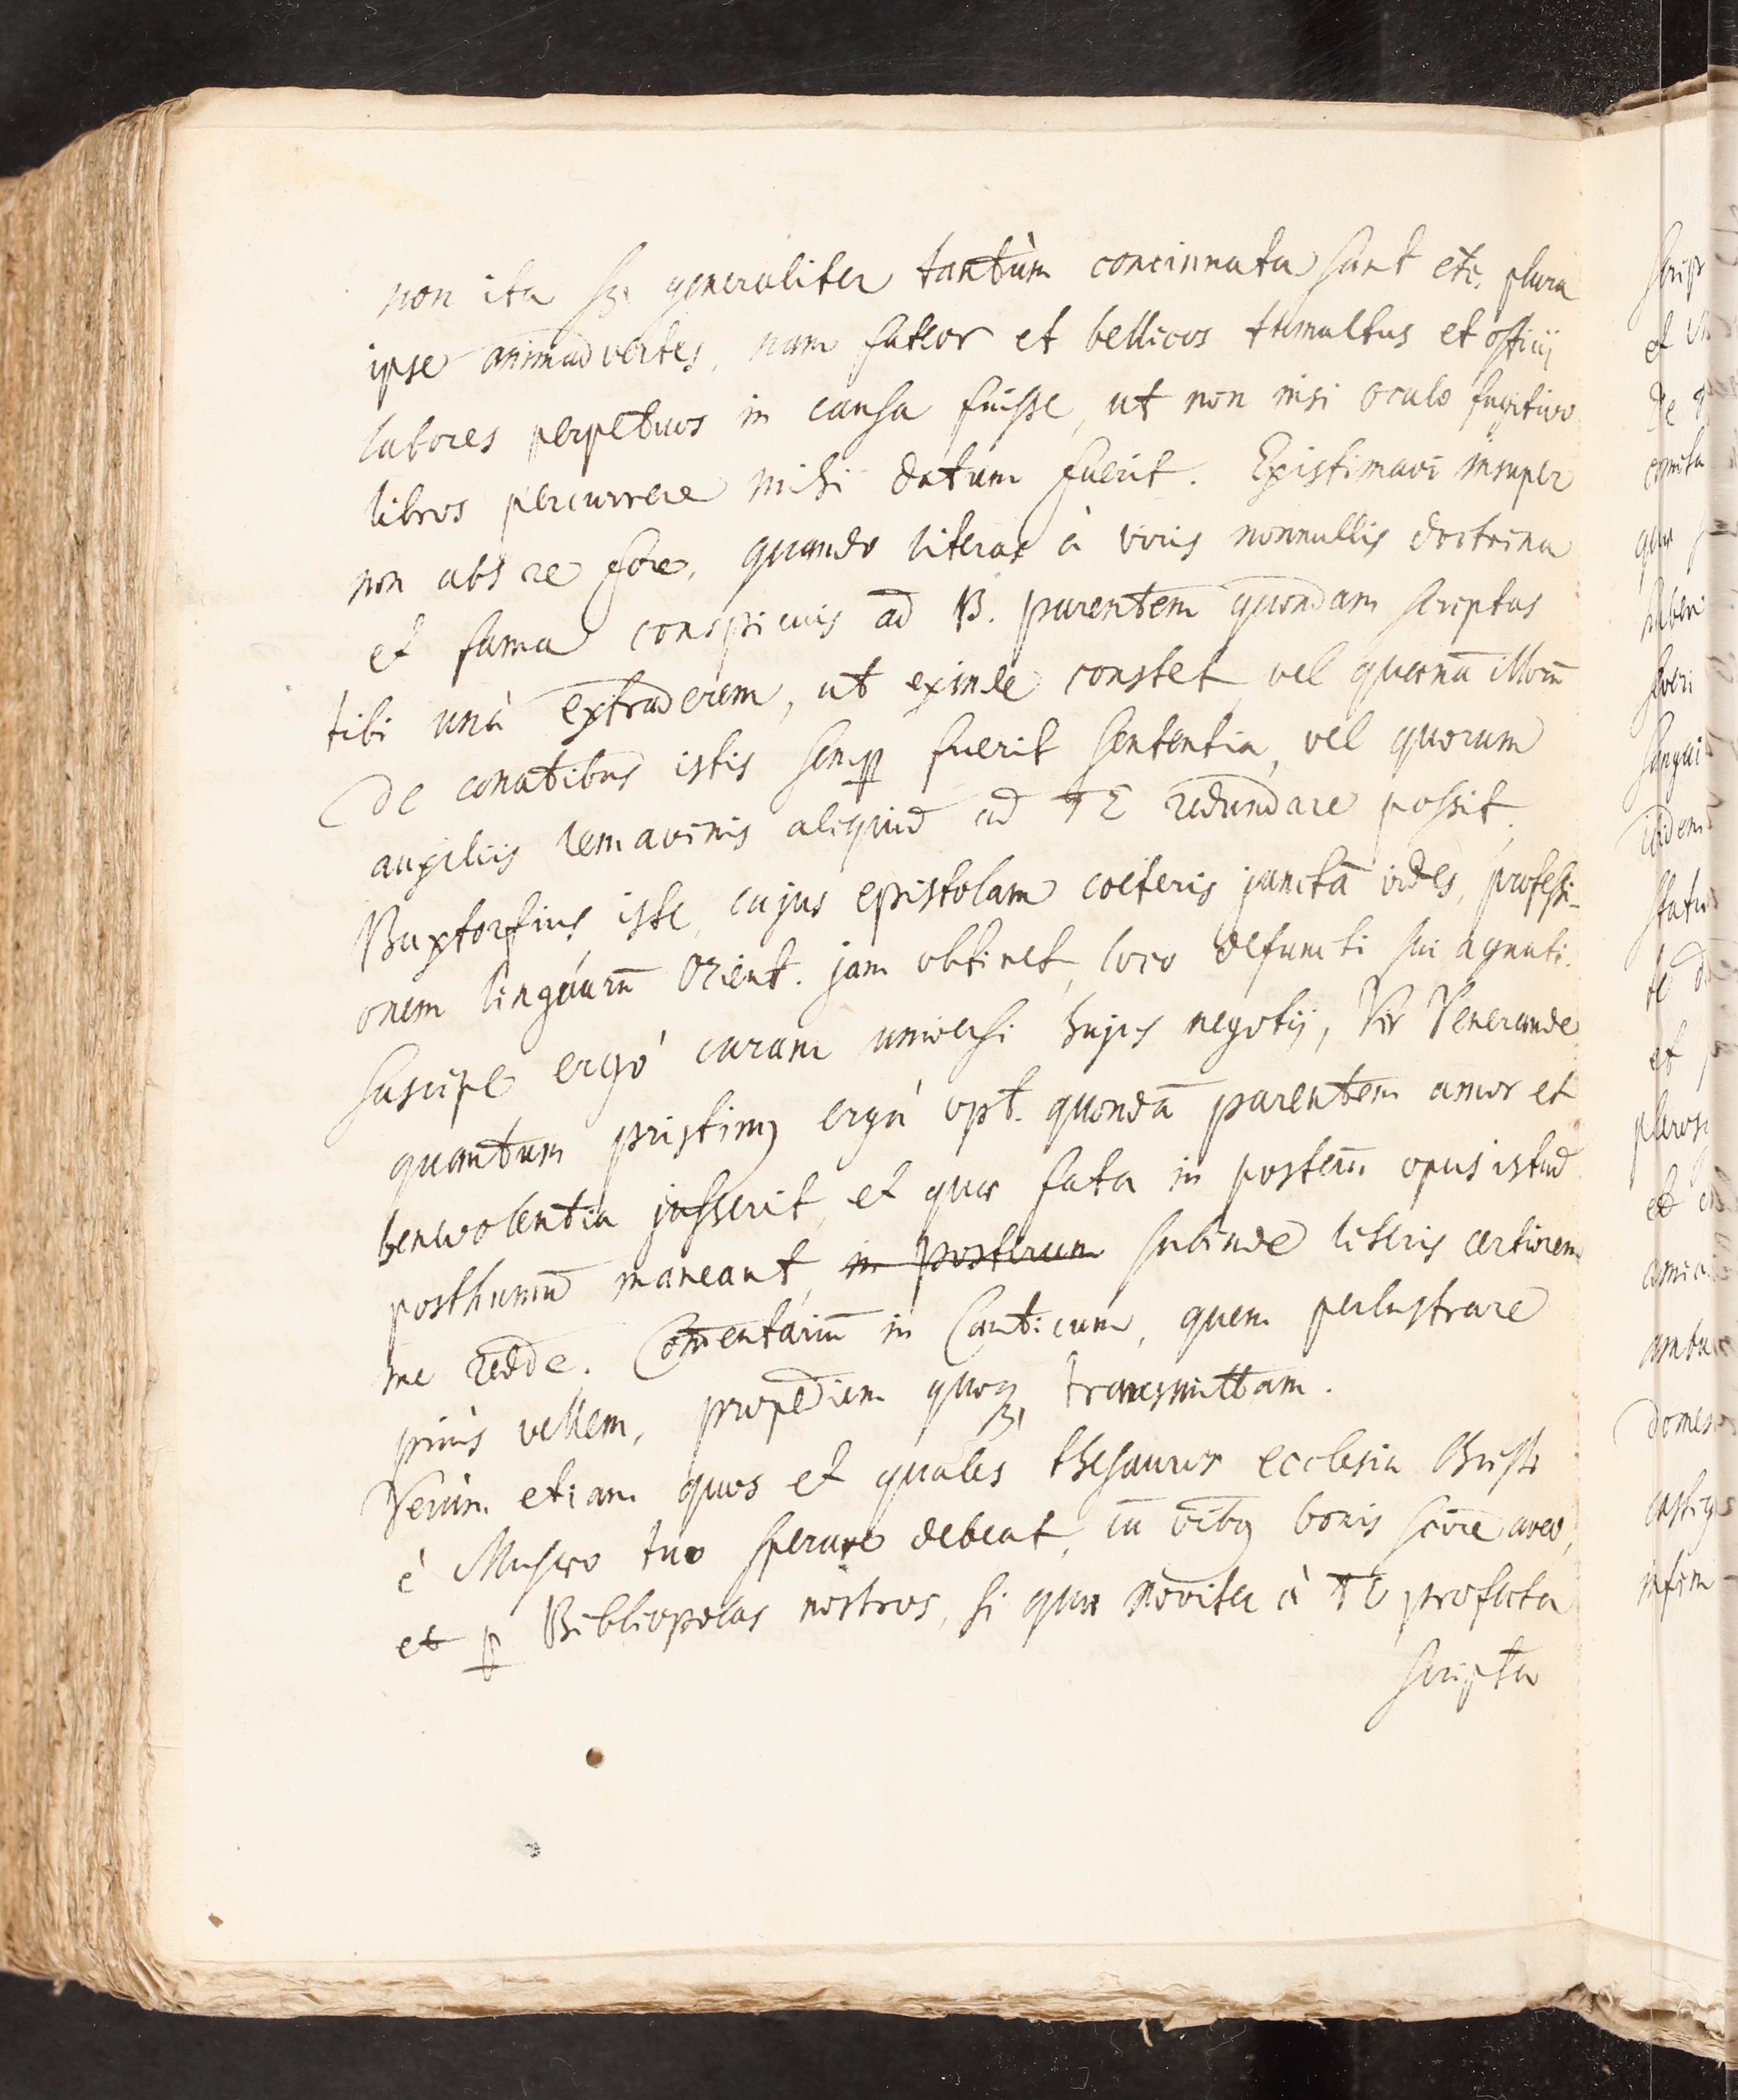 non ita sꝫ generaliter tantùm concinnata sunt etc. plura
ipse animadvertes, nam fateor et bellicos tumultus et officij
labores perpetuos in causa fuisse, ut non nisi oculo fugitivo
libros percurrere mihi datum fuerit. Existimavi insuper
non abs re fore, quando literas à viris nonnullis doctrina
et fama conspicuis ad B. parentem quondam scriptas
tibi unà extraderem, ut exinde constet vel quaenā illorū
de conatibus istis semꝑ fuerit sententia, vel quorum
auxiliis aliquid ad TE redundare possit.
Buxtorfius iste, cujus epistolam coeteris junctā vides, professi-
onem linguarū Orient. jam obtinet, loco defuncti sui agnati.
Suscipe ergò curam universi hujus negotij, Vir Venerande
quantum pristinꝯ ergà opt. quondā parentem amor et
benevolentia jusserit, et quae fata in posterū opus istud
posthumū maneant, in posterum subinde literis certiorem
me redde. Com̄entariū in Canticum, quem perlustrare
priùs vellem, propediem quoqꝫ transmittam.
Verùm etiam quos et quales thesauros ecclesia Christi
è Musaeo tuo sperare debeat, cū oībꝯ bonis scire aveo,
et ꝑ Bibliopolas nostros, si quae noviter à TE profecta
scripta